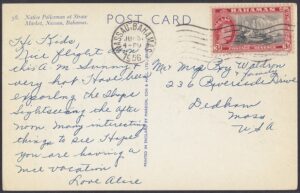 38. Native Policeman at Straw
Market, Nassau, Bahamas.
POST CARD
NASSAU · BAHAMAS
BAHAMAS
Hi Kids
Nice flight
Am Sunny &
very hot Have been
exploring the Shops
Sightseeing the after
noon Many interesting
things to see Hope
you are having a
nice vacation
Love Alice
Mr Mrs Roy Watson
& family
236 Riverside Drive
Dedham
Mass
USA